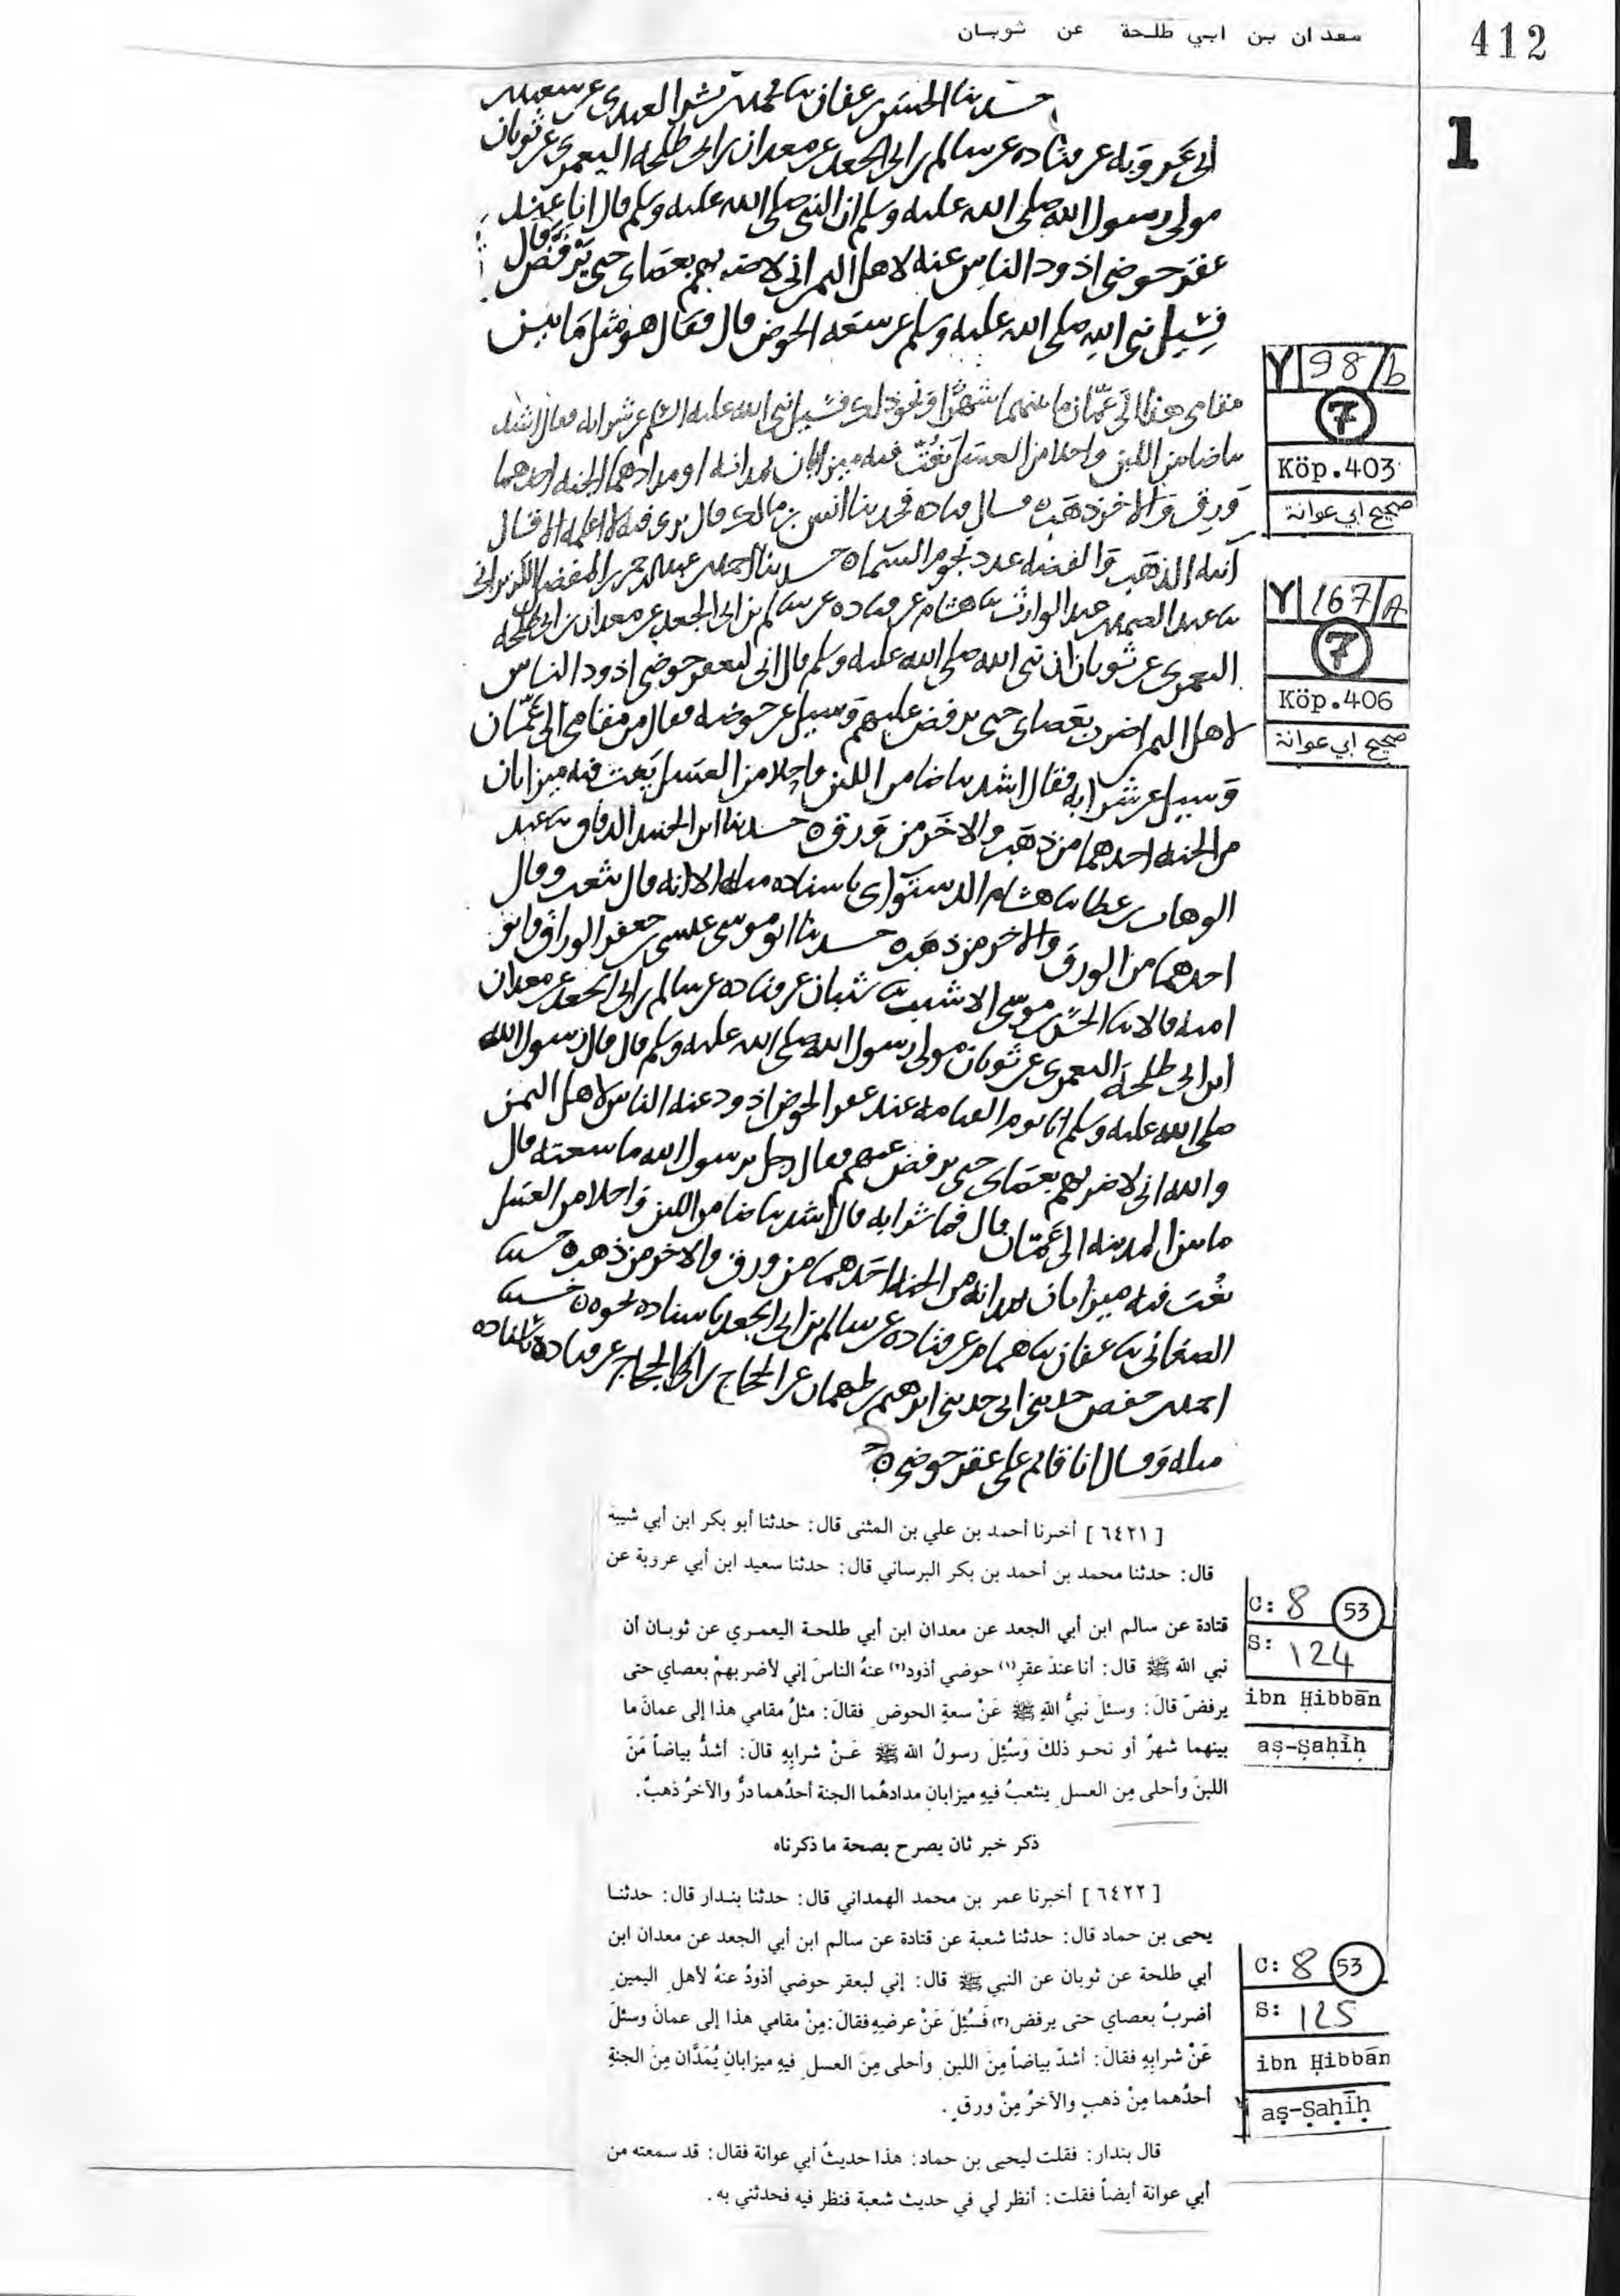 معدان بن ابي طلحة عن ثوبان
412
1
حدثنا الحسن بن عفان ثنا محمد بن بشر العبدي عن سعيد بن
أبي عروبة عن قتادة عن سالم بن أبي الجعد عن معدان بن أبي طلحة اليعمري عن ثوبان
مولى رسول الله صلى الله عليه وسلم أن النبي صلى الله عليه وسلم قال أنا عند
عقر حوضي أذود الناس عنه لأهل اليمن إني لأضربهم بعصاي حتى يرفض قال
فسئل نبي الله صلى الله عليه وسلم عن سعة الحوض قال فقال هو مثل ما بين
مقامي هذا إلى عمان ما بينهما شهرا ونحو ذلك فسئل نبي الله عليه السلم عن شرابه فقال أشد
بياضا من اللبن وأحلا من العسل يغت فيه ميزابان يمدانه أو مدادهما الجنة أحدهما
ورق والآخر ذهب قال قتادة فحدثنا أنس بن مالك قال يرى فيه لا أعلمه إلا قال
آنية الذهب والفضة عدد نجوم السماء حدثنا أحمد بن عبد الرحمن بن المفضل الكزبراني
ثنا عبد الصمد بن عبد الوارث ثنا هشام عن قتادة عن سالم بن أبي الجعد عن معدان بن أبي طلحة
اليعمري عن ثوبان أن نبي الله صلى الله عليه وسلم قال إني لبعقر حوضي أذود الناس
لأهل اليمن أضرب بعصاي حتى يرفض عليهم وسئل عن عرضه فقال من مقامي إلى عمان
وسئل عن شرابه فقال أشد بياضا من اللبن وأحلا من العسل يغت فيه ميزابان
من الجنة أحدهما من ذهب والآخر من ورق حدثنا ابن الجنيد الدقاق ثنا عبد
الوهاب بن عطا ثنا هشام الدستوائي بإسناده مثله إلا أنه قال شعب وقال
أحدهما من الورق والآخر من ذهب حدثنا أبو موسى عيسى بن جعفر الوراق وأبو
أمية قالا ثنا الحسن بن موسى الأشيب ثنا شيبان عن قتادة عن سالم بن أبي الجعد عن معدان
ابن أبي طلحة اليعمري عن ثوبان مولى رسول الله صلى الله عليه وسلم قال قال رسول الله
صلى الله عليه وسلم أنا يوم القيامة عند عقر الحوض أذود عنه الناس لأهل اليمن
والله إني لأضربهم بعصاي حتى يرفض عنهم فقال رجل يرسول الله ما سعته قال
ما بين المدينة إلى عمان قال فما شرابه قال أشد بياضا من اللبن وأحلا من العسل
يغت فيه ميزابان يمدانه من الجنة أحدهما من ورق والآخر من ذهب حدثنا
الصغاني ثنا عفان ثنا همام عن قتادة عن سالم بن أبي الجعد بإسناده نحوه حدثنا
أحمد بن حفص حدثني أبي حدثني إبرهيم بن طهمان عن الحجاج بن الحجاج عن قتادة بإسناده
مثله وقال أنا قائم على عقر حوضي
Y 98/b
7
Köp.403
صحيح ابي عوانة
Y 167/A
7
Köp.406
صحيح ابي عوانة
[ ٦٤٢١ ] أخبرنا أحمد بن علي بن المثنى قال: حدثنا أبو بكر ابن أبي شيبة
قال: حدثنا محمد بن أحمد بن بكر البرساني قال: حدثنا سعيد ابن أبي عروبة عن
قتادة عن سالم ابن أبي الجعد عن معدان ابن أبي طلحة اليعمري عن ثوبان أن
نبي الله ﷺ قال: أنا عندَ عقرِ(١) حوضي أذود(٢) عنهُ الناسَ إني لأضربهمْ بعصاي حتى
يرفضّ قالَ: وسئلَ نبيُّ اللهِ ﷺ عَنْ سعةِ الحوضِ فقالَ: مثلُ مقامي هذا إلى عمانَ ما
بينهما شهرٌ أو نحو ذلكَ وَسُئِلَ رسولُ الله ﷺ عَنْ شرابِهِ قالَ: أشدُّ بياضاً مَنَ
اللبنَ وأحلى مِن العسلِ ينثعبُ فيهِ ميزابانِ مدادهُما الجنة أحدُهما درٌّ والآخرُ ذهبٌ.
ذكر خبر ثان يصرح بصحة ما ذكرناه
[ ٦٤٢٢ ] أخبرنا عمر بن محمد الهمداني قال: حدثنا بندار قال: حدثنا
يحيى بن حماد قال: حدثنا شعبة عن قتادة عن سالم ابن أبي الجعد عن معدان ابن
أبي طلحة عن ثوبان عن النبي ﷺ قال: إني لبعقر حوضي أذودُ عنهُ لأهلِ اليمينِ
أضربُ بعصاي حتى يرفض(٣) فَسُئِلَ عَنْ عرضِهِ فقالَ: مِنْ مقامي هذا إلى عمانَ وسئلَ
عَنْ شرابِهِ فقالَ: أشدّ بياضاً مِنَ اللبنِ وأحلى مِنَ العسلِ فيهِ ميزابانِ يُمَدَّان مِنَ الجنةِ
أحدُهما مِنْ ذهبٍ والآخرُ مِنْ ورقٍ.
قال بندار: فقلت ليحيى بن حماد: هذا حديثُ أبي عوانة فقال: قد سمعته من
أبي عوانة أيضاً فقلت: أنظر لي في حديث شعبة فنظر فيه فحدثني به.
C: 8 53
S: 124
ibn Ḥibbān
aṣ-Ṣaḥīḥ
C: 8 53
S: 125
ibn Ḥibbān
aṣ-Ṣaḥīḥ